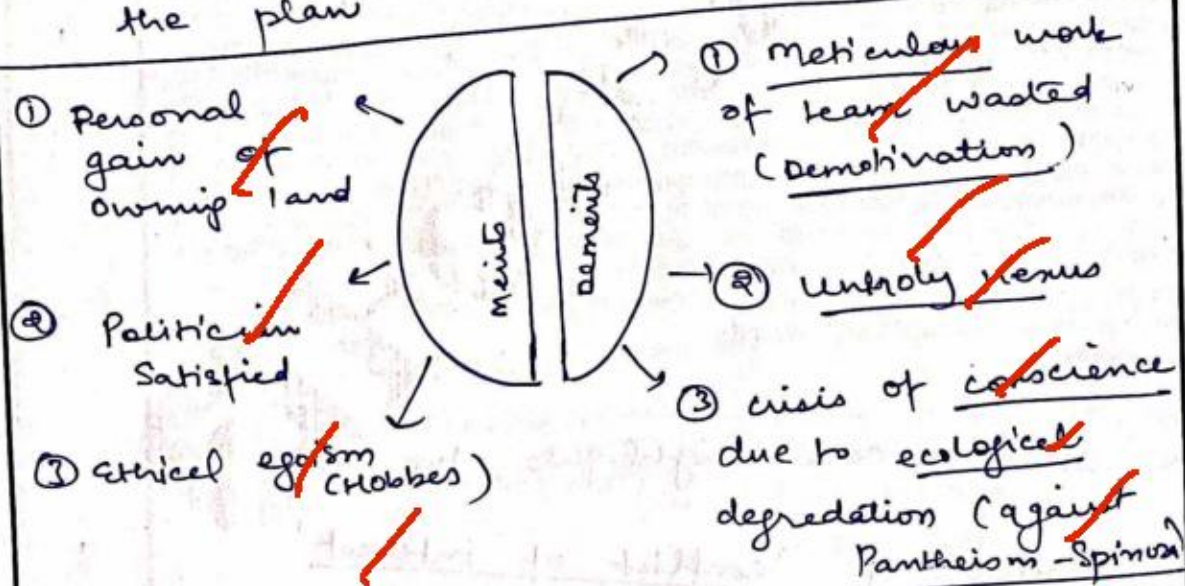 the plan
① Personal
gain of
owning land
② Politician
Satisfied
③ Ethical egoism
(Hobbes)
Merits
Demerits
① Meticulous work
of team wasted
(Demotivation)
② Unholy nexus
③ crisis of conscience
due to ecological
degredation (against
Pantheism - Spinoza)